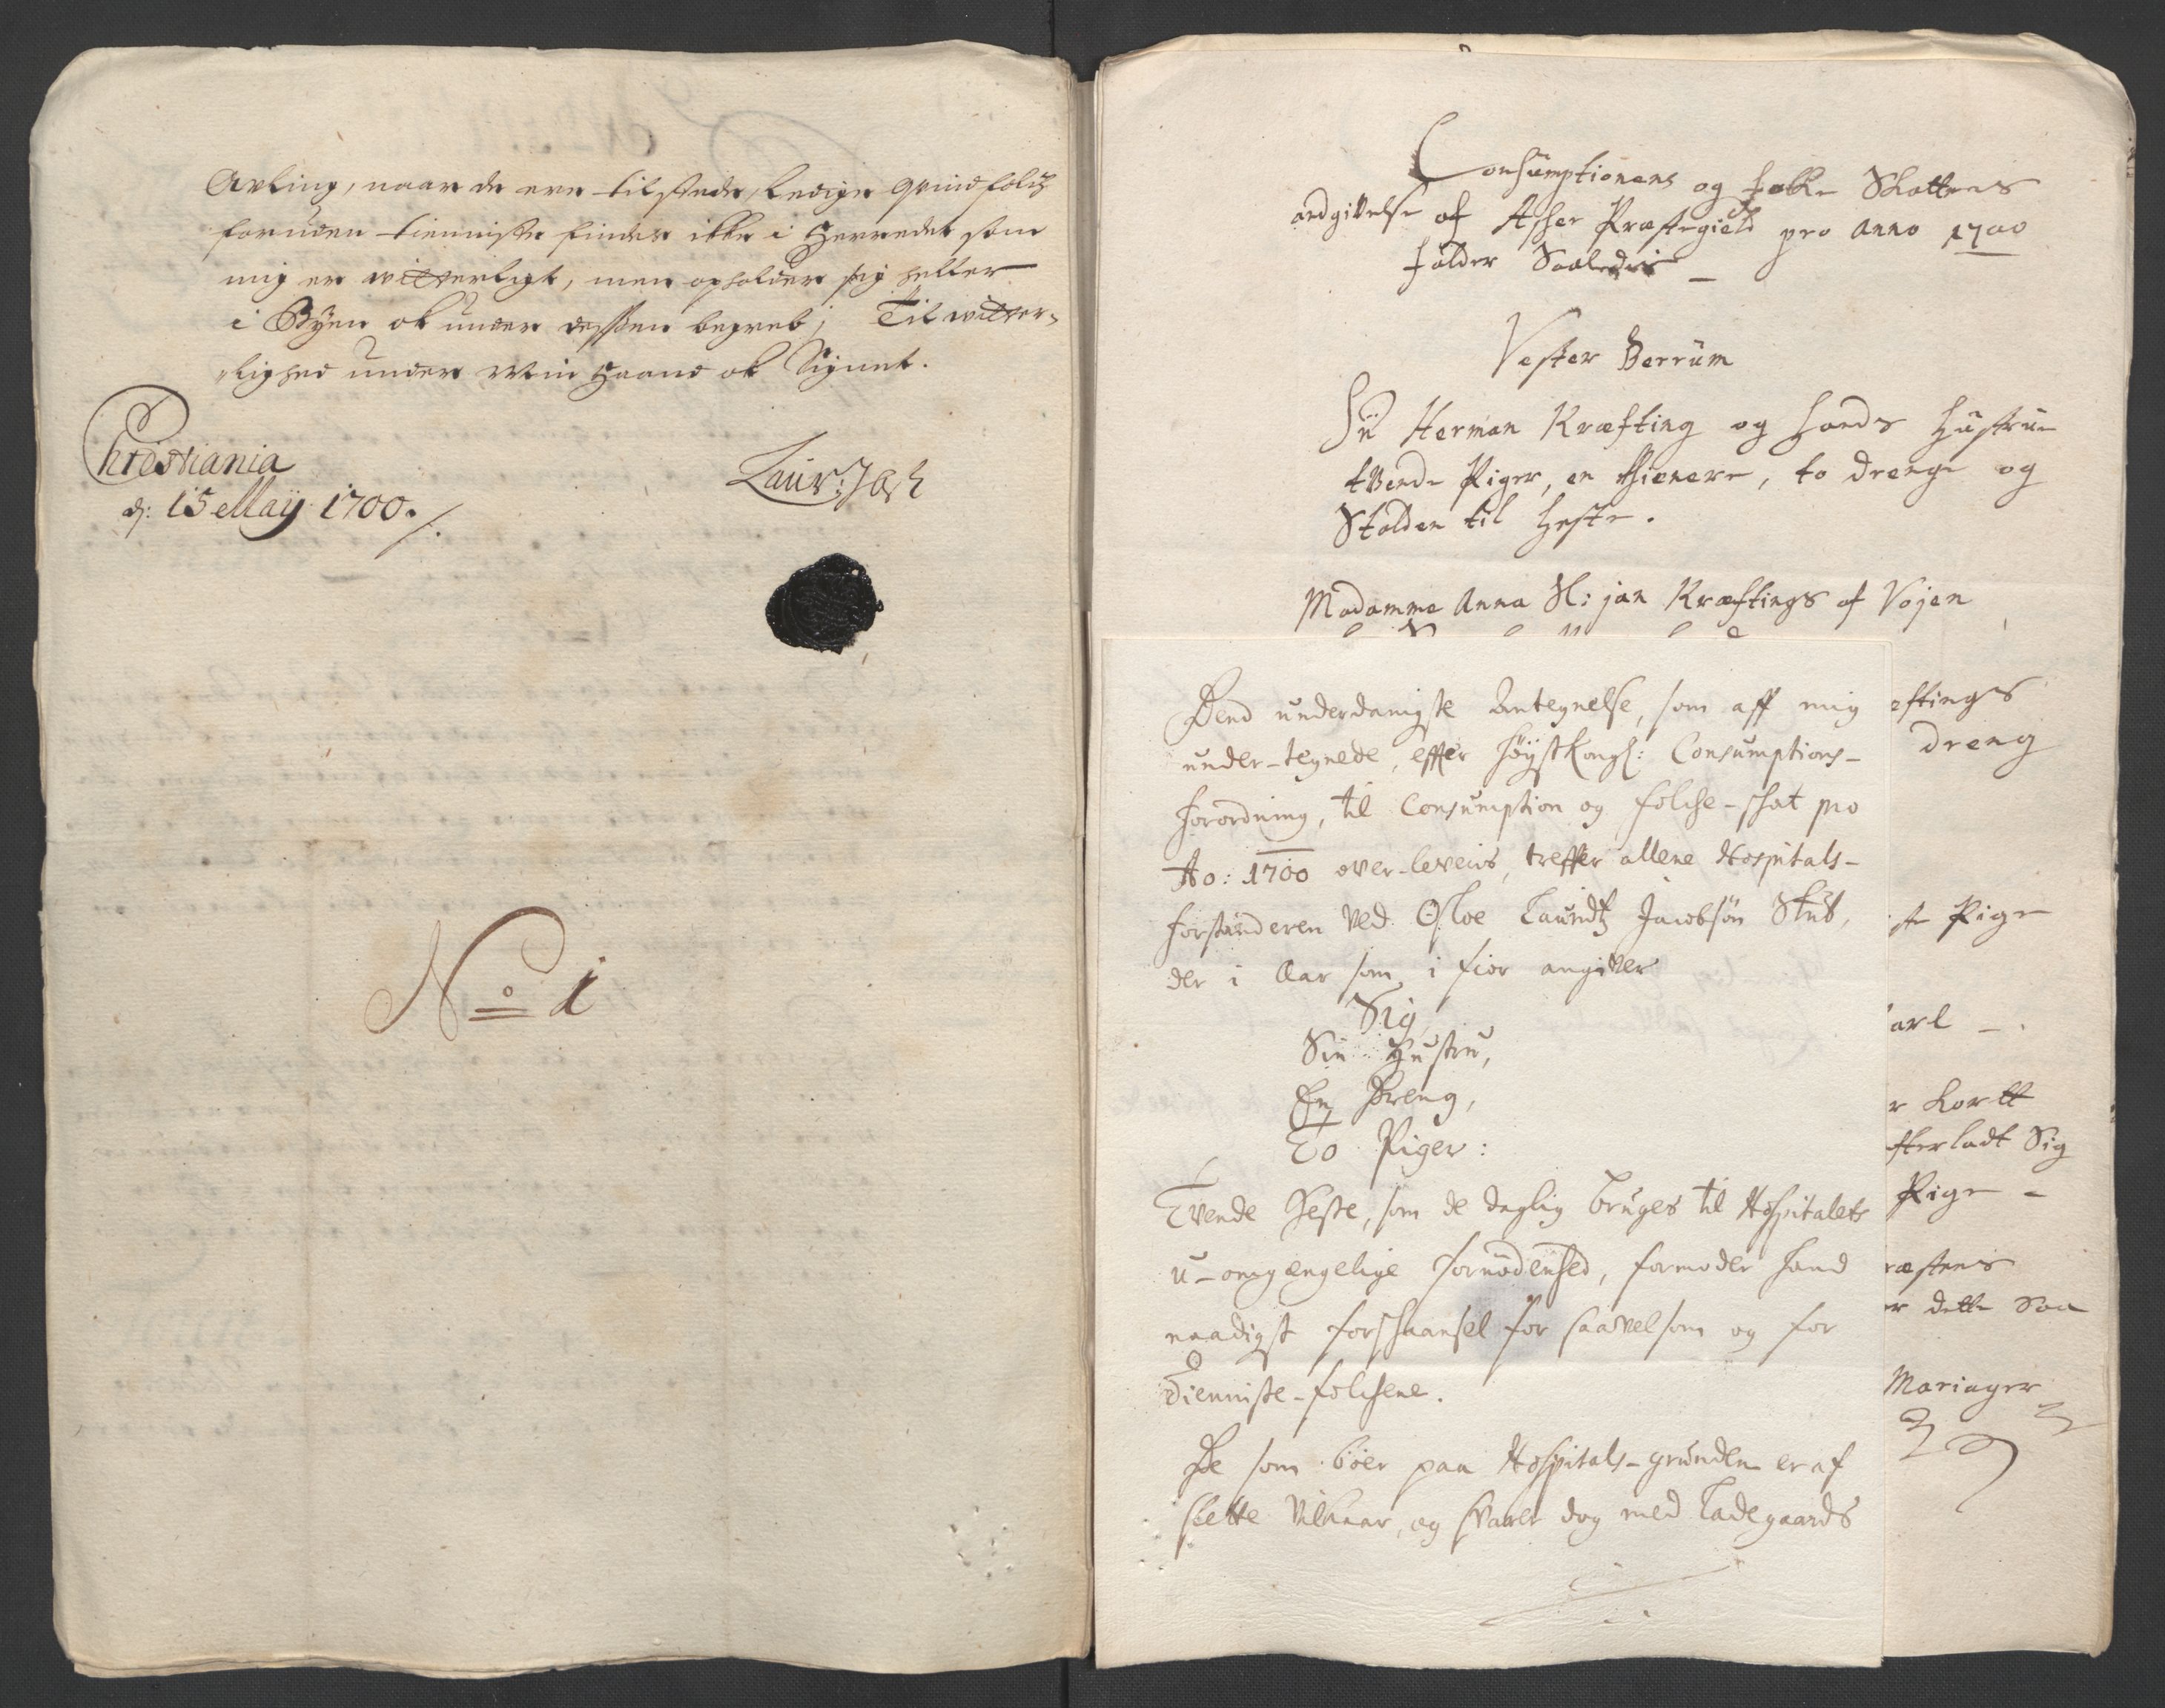 Avling, naar de ere tilstede, Ledige qvindfolch
foruden tienniste findes ikke i Herredet som
mig er witterligt, men opholder sig heller
i Byen ok under dessen begreb; Til witter-
lighed under Min Haand ok Signet.
Christiania
d: 15 Maij 1700.
Laur:
No 1
Consumptionens og folke Skattens
andgivelse af Asker Præstegield pro Anno 1700
falder Saaledis
Vester Berrum
Herman Kræfting og hands Hustrue
tvende Piger, en thienere, to drenge og
Stalden til heste.
Madamme Anna Sl: jan Kræftings af Vøjen
æftings
dreng
Pige
arl
r Kortt
fterladt Sig
Pige
ræstens
er dette Saa
Mariager
Dend underdanigste Antegnelse, som aff mig
under-tegnede, effter høystkongl: Consumptions-
forordning, til Consumption og folche-schat pro
Ao: 1700 over-leveris, treffer allene Hospitals-
forstanderen ved Osloe Lauridtz Jacobsøn Stub,
der i Aar som i fior angiver
Sig,
Sin Hustru,
En Dreng,
To Piger:
Tvende Heste, som de daglig bruges til Hospitalets
u-omgængelige fornødenhed, formoder hand
naadigst forschaansel for saavelsom og for
Tienniste-folchene.
De som boer paa Hospitals-grunden er af
slette vilkaar, og svarer dog med Ladegaards